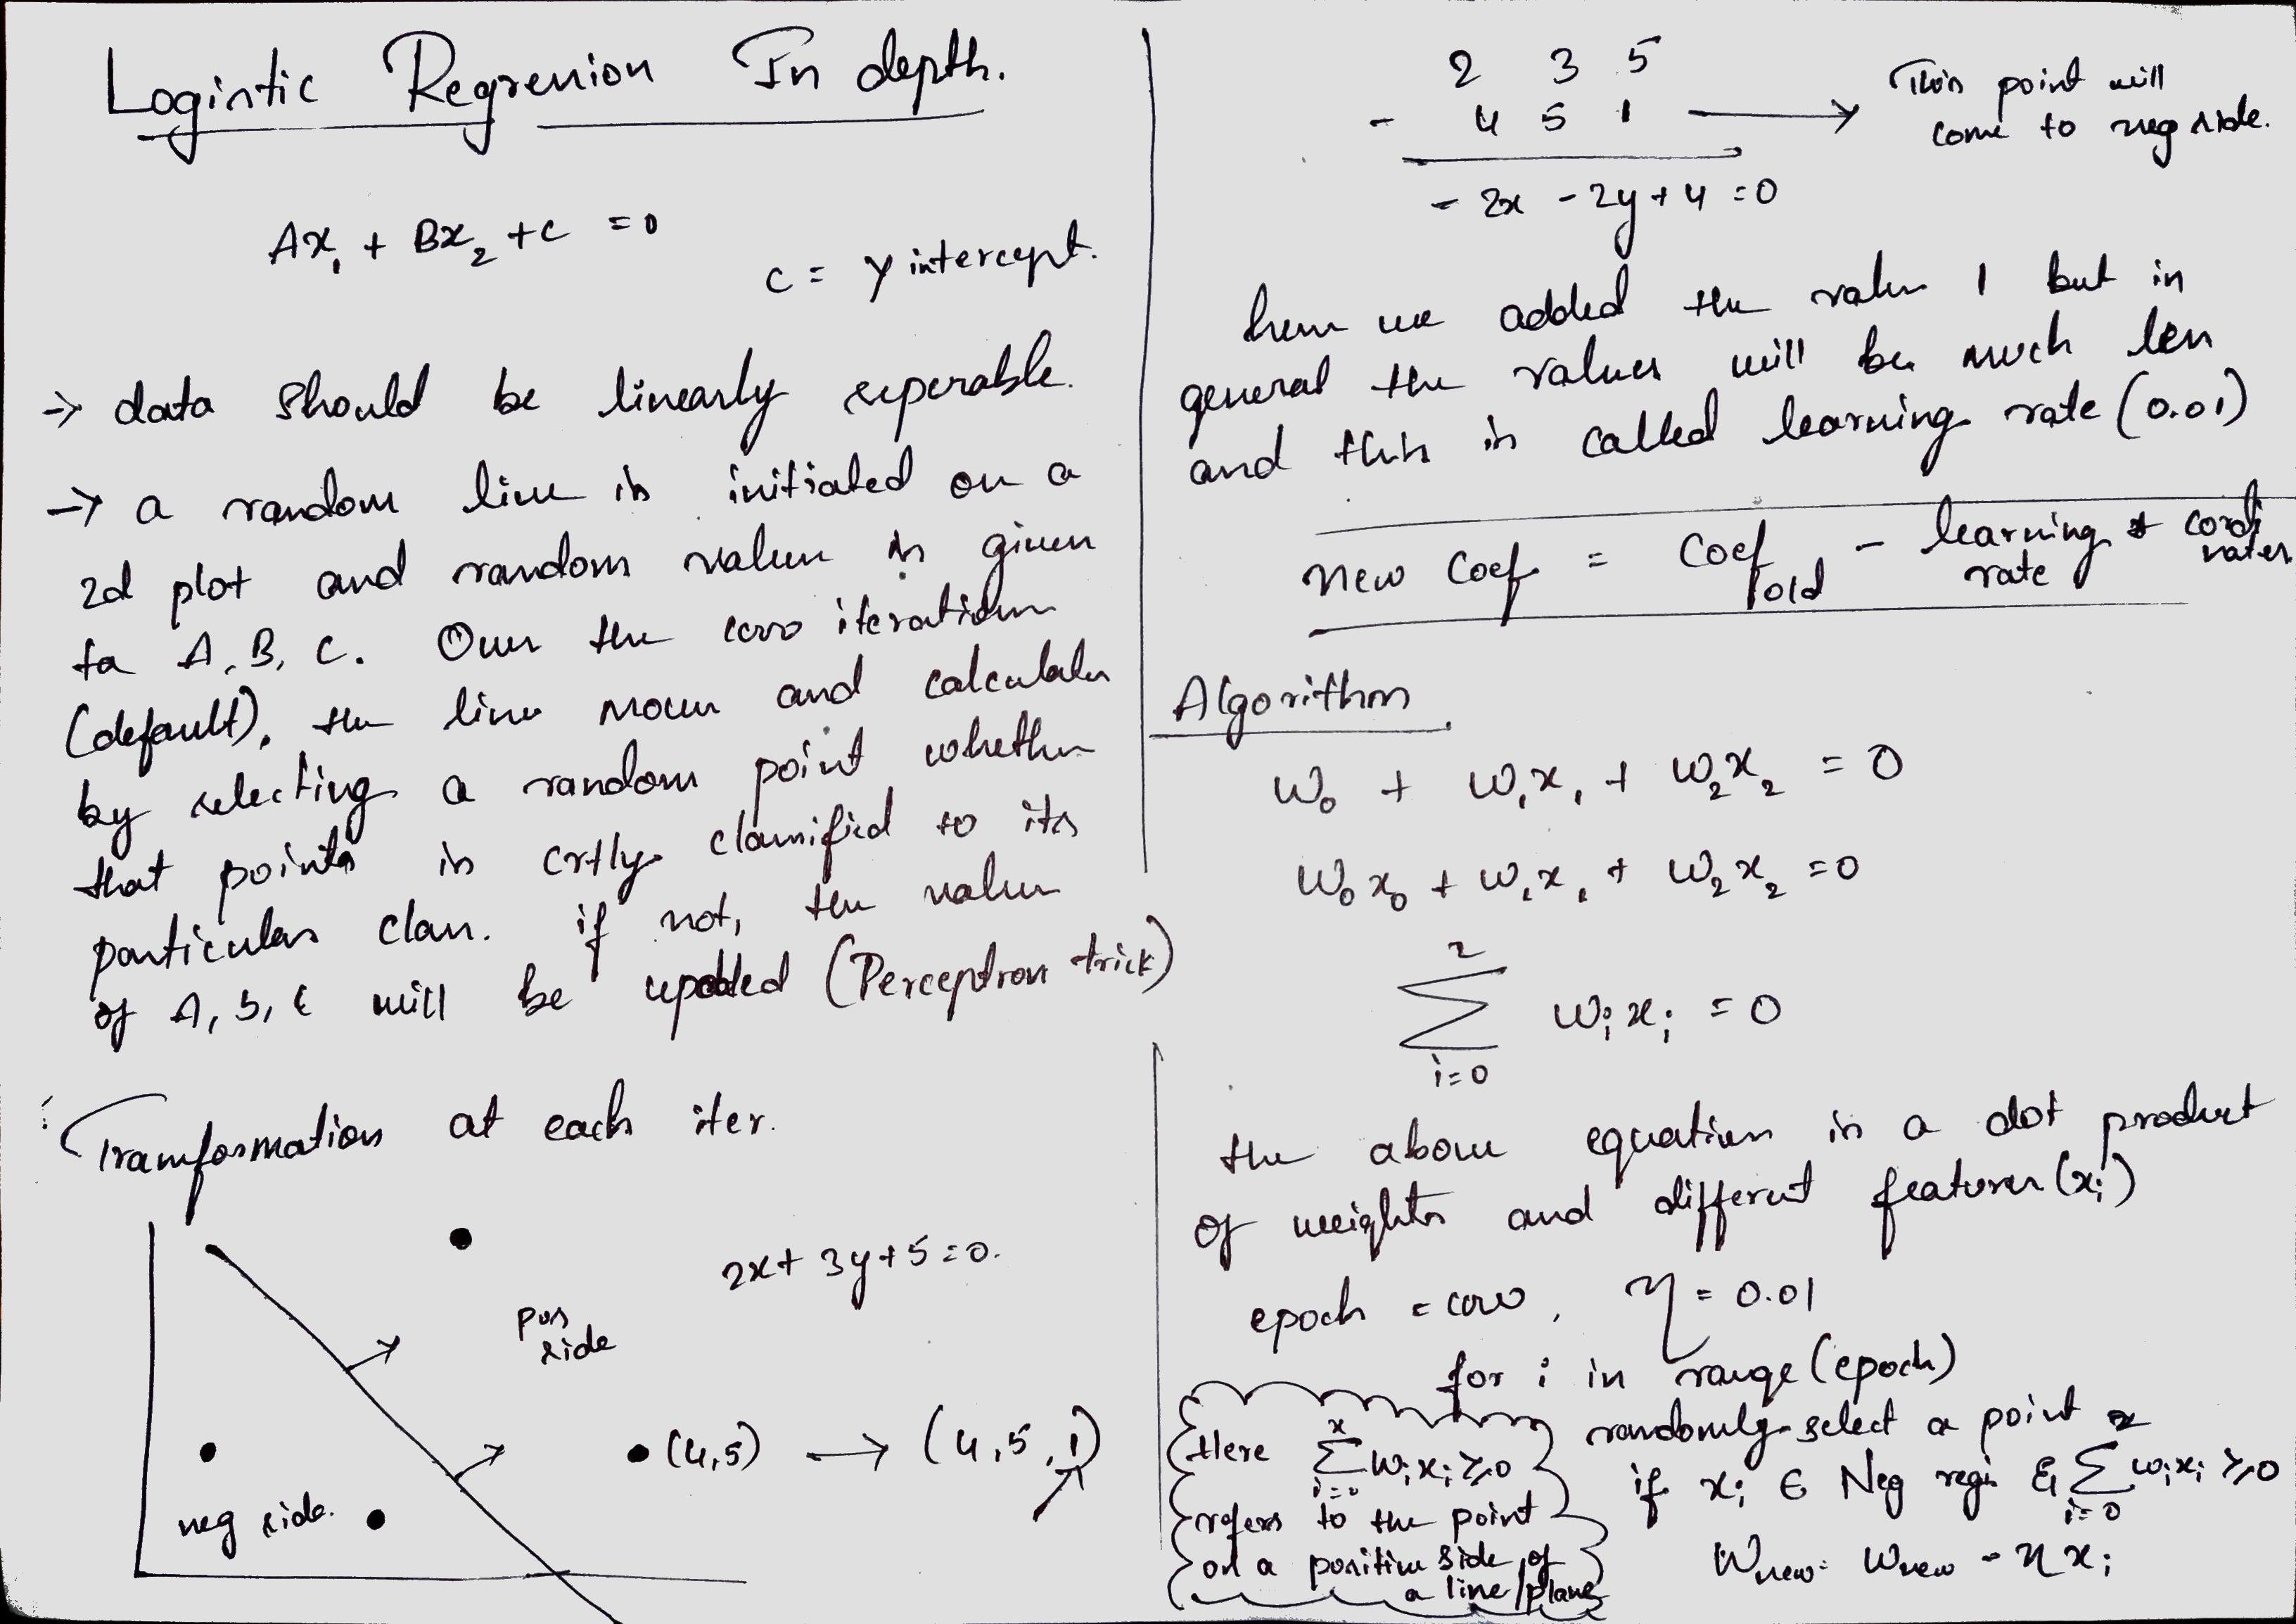 Logistic Regression In depth.
Ax₁ + Bx₂ + c = 0
c = y intercept.
→ data should be linearly seperable.
→ a random line is initiated on a
2d plot and random value is given
to A, B, C. Over the 1000 iterations
(default), the line moves and calculates
by selecting a random point whether
that points is crtly classified to its
particular class. if not, the value
of A, B, C will be updated (Perceptron trick)
Transformation at each iter.
2x + 3y + 5 = 0.
pos
side
(4,5) → (4,5,1)
neg side.
2 3 5
- 4 5 1 → This point will
come to neg side.
- 2x - 2y + 4 = 0
here we added the value 1 but in
general the values will be much less
and this is called learning rate (0.01)
new coef = coef old - learning rate * coordinates
Algorithm
w₀ + w₁x₁ + w₂x₂ = 0
w₀x₀ + w₁x₁ + w₂x₂ = 0
2
∑ wᵢxᵢ = 0
i=0
the above equation is a dot product
of weights and different features (xᵢ)
epoch = 1000, η = 0.01
for i in range (epoch)
randomly select a point
if xᵢ ∈ Neg regi & ∑ᵢ₌₀² wᵢxᵢ ≥ 0
w new = w new - ηxᵢ
Here ∑ wᵢxᵢ ≥ 0
refers to the point
on a positive side of
a line/plane